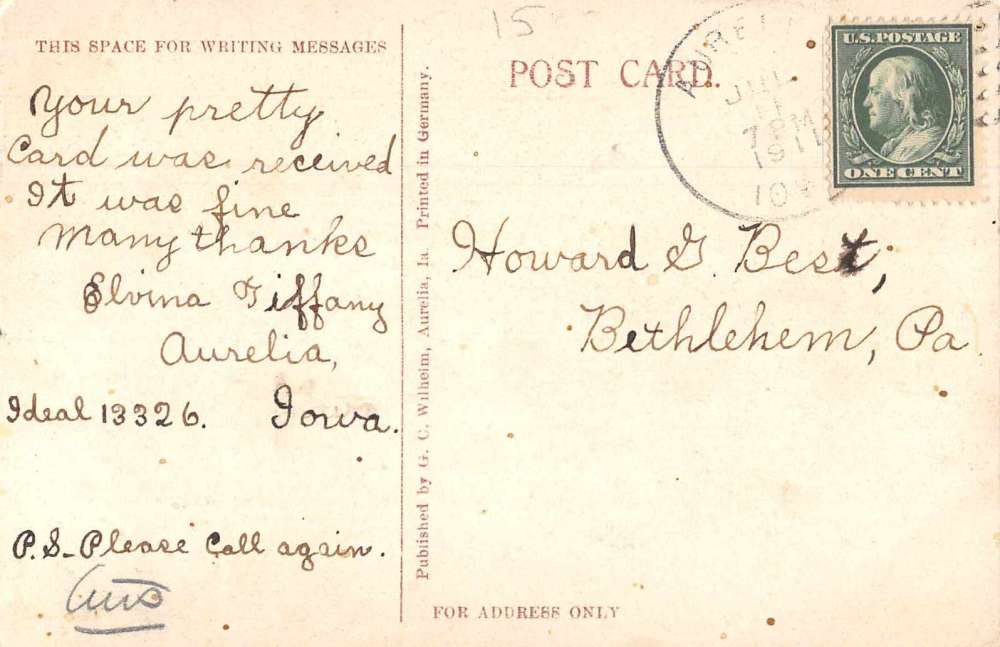 15
THIS SPACE FOR WRITING MESSAGES
Your pretty
Card was received
It was fine
Many thanks
Elvina Tiffany
Aurelia,
Ideal 13326. Iowa.
P.S. Please Call again.
Published by G. C. Wilhelm, Aurelia, Ia. Printed in Germany.
POST CARD.
JUL
11
7 PM
1911
U.S. POSTAGE
ONE CENT
Howard G. Best,
Bethlehem, Pa
FOR ADDRESS ONLY